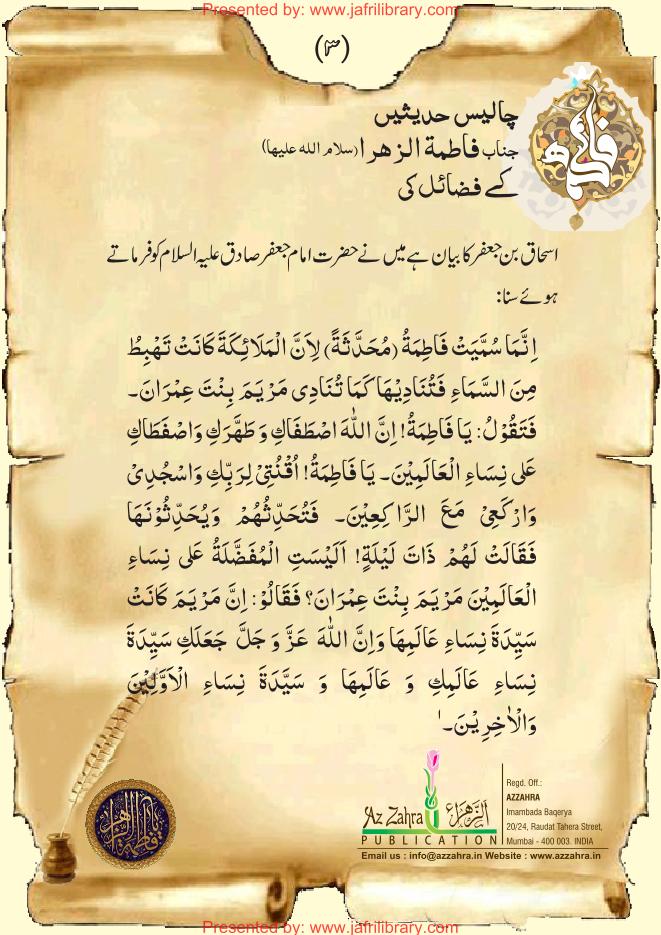 Presented by: www.jafrilibrary.com
(۳)
چالیس حدیثیں
جناب فاطمة الزهرا (سلام الله عليها)
کے فضائل کی
اسحاق بن جعفر کا بیان ہے میں نے حضرت امام جعفر صادق علیہ السلام کو فرماتے
ہوئے سنا:
اِنَّمَا سُمِّیَتْ فَاطِمَةُ (مُحَدَّثَةً) لِاَنَّ الْمَلَائِکَةَ کَانَتْ تَهْبِطُ
مِنَ السَّمَاءِ فَتُنَادِیْهَا کَمَا تُنَادِی مَرْیَمَ بِنْتَ عِمْرَانَ۔
فَتَقُوْلُ: یَا فَاطِمَةُ! اِنَّ اللّٰهَ اصْطَفَاكِ وَ طَهَّرَكِ وَاصْفَطَاكِ
عَلٰی نِسَاءِ الْعَالَمِیْنَ۔ یَا فَاطِمَةُ! اُقْنُتِیْ لِرَبِّكِ وَاسْجُدِیْ
وَارْکَعِیْ مَعَ الرَّاکِعِیْنَ۔ فَتُحَدِّثُهُمْ وَیُحَدِّثُوْنَهَا
فَقَالَتْ لَهُمْ ذَاتَ لَیْلَةٍ! اَلَیْسَتِ الْمُفَضَّلَةُ عَلٰی نِسَاءِ
الْعَالَمِیْنَ مَرْیَمَ بِنْتَ عِمْرَانَ؟ فَقَالُوْ: اِنَّ مَرْیَمَ کَانَتْ
سَیِّدَةَ نِسَاءِ عَالَمِهَا وَاِنَّ اللّٰهَ عَزَّ وَ جَلَّ جَعَلَكِ سَیِّدَةَ
نِسَاءِ عَالَمِكِ وَ عَالَمِهَا وَ سَیَّدَةَ نِسَاءِ الْاَوَّلِیْنَ
وَالْاٰخِرِیْنَ۔ ۱
Az Zahra الزهراء
PUBLICATION
Regd. Off.:
AZZAHRA
Imambada Baqerya
20/24, Raudat Tahera Street,
Mumbai - 400 003. INDIA
Email us : info@azzahra.in Website : www.azzahra.in
Presented by: www.jafrilibrary.com